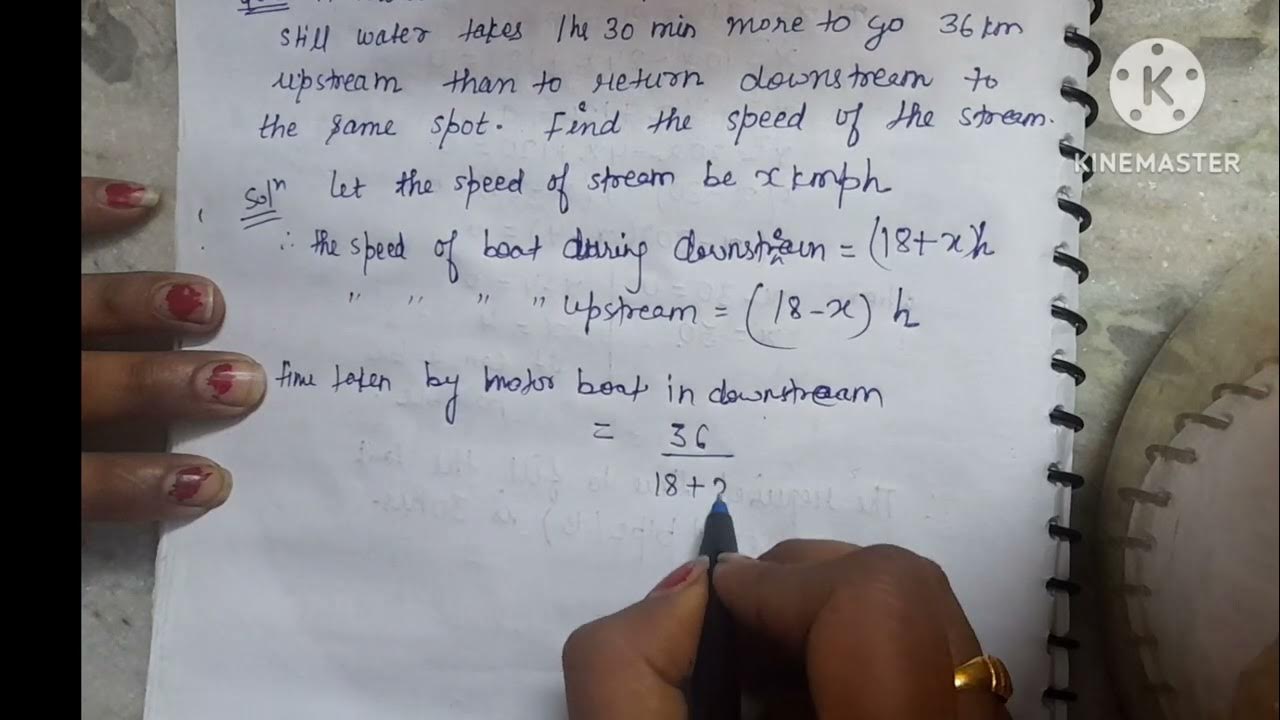 still water takes 1h 30 min more to go 36 km
upstream than to return downstream to
the same spot. Find the speed of the stream.
Solⁿ Let the speed of stream be x kmph
∴ the speed of boat during downstream = (18+x) h
" " " " upstream = (18-x) h
time taken by motor boat in downstream
= 36
18+
K
KINEMASTER